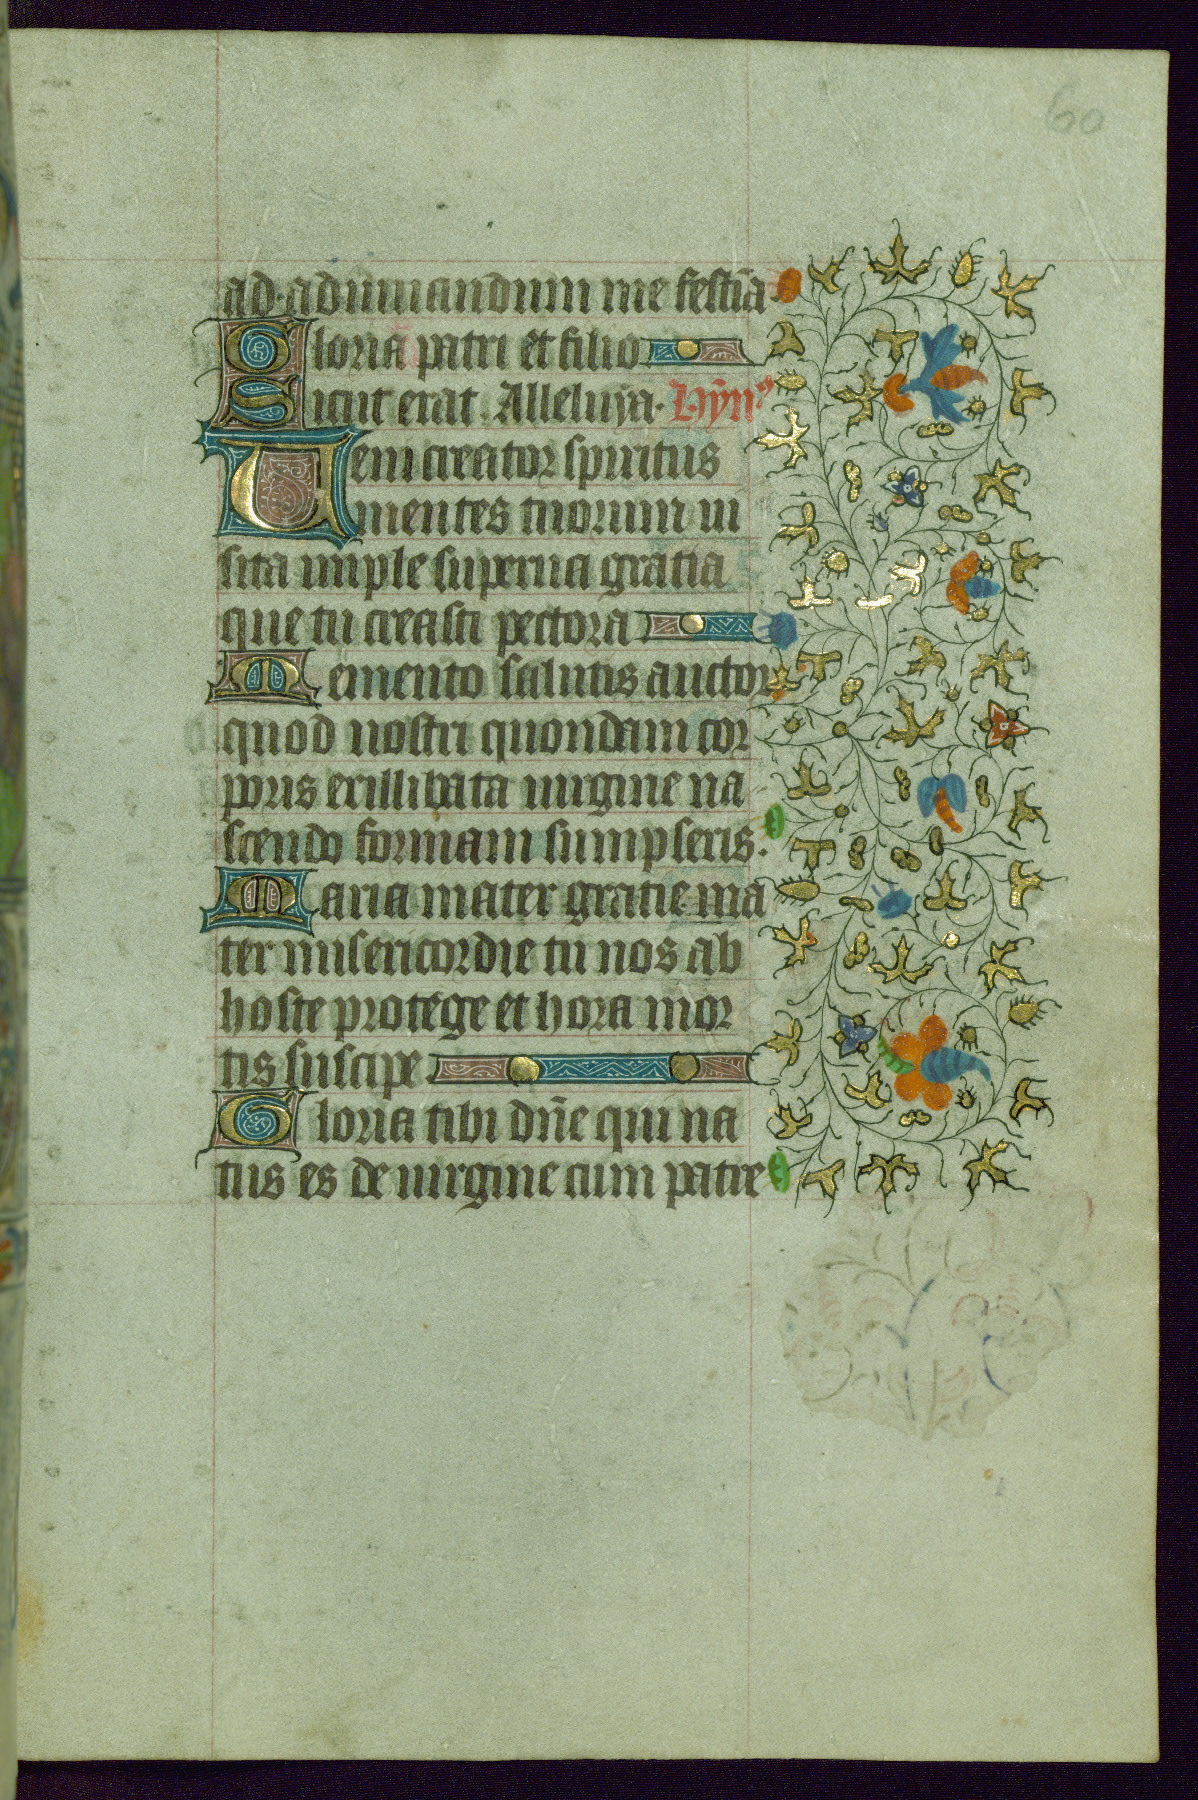 60
ad adiuuandum me festīa
Gloria patri et filio
Sicut erat. Alleluya. Hȳnꝰ
Ueni creator spiritus
mentes tuorum ui
sita imple superna gratia
que tu creasti pectora
Memento salutis auctor
quod nostri quondam cor
poris exillibata uirgine na
scendo formam sumpseris.
Maria mater gratie ma
ter misericordie tu nos ab
hoste protege et hora mor
tis suscipe
Gloria tibi dn̄e qui na
tus es de uirgine cum patre